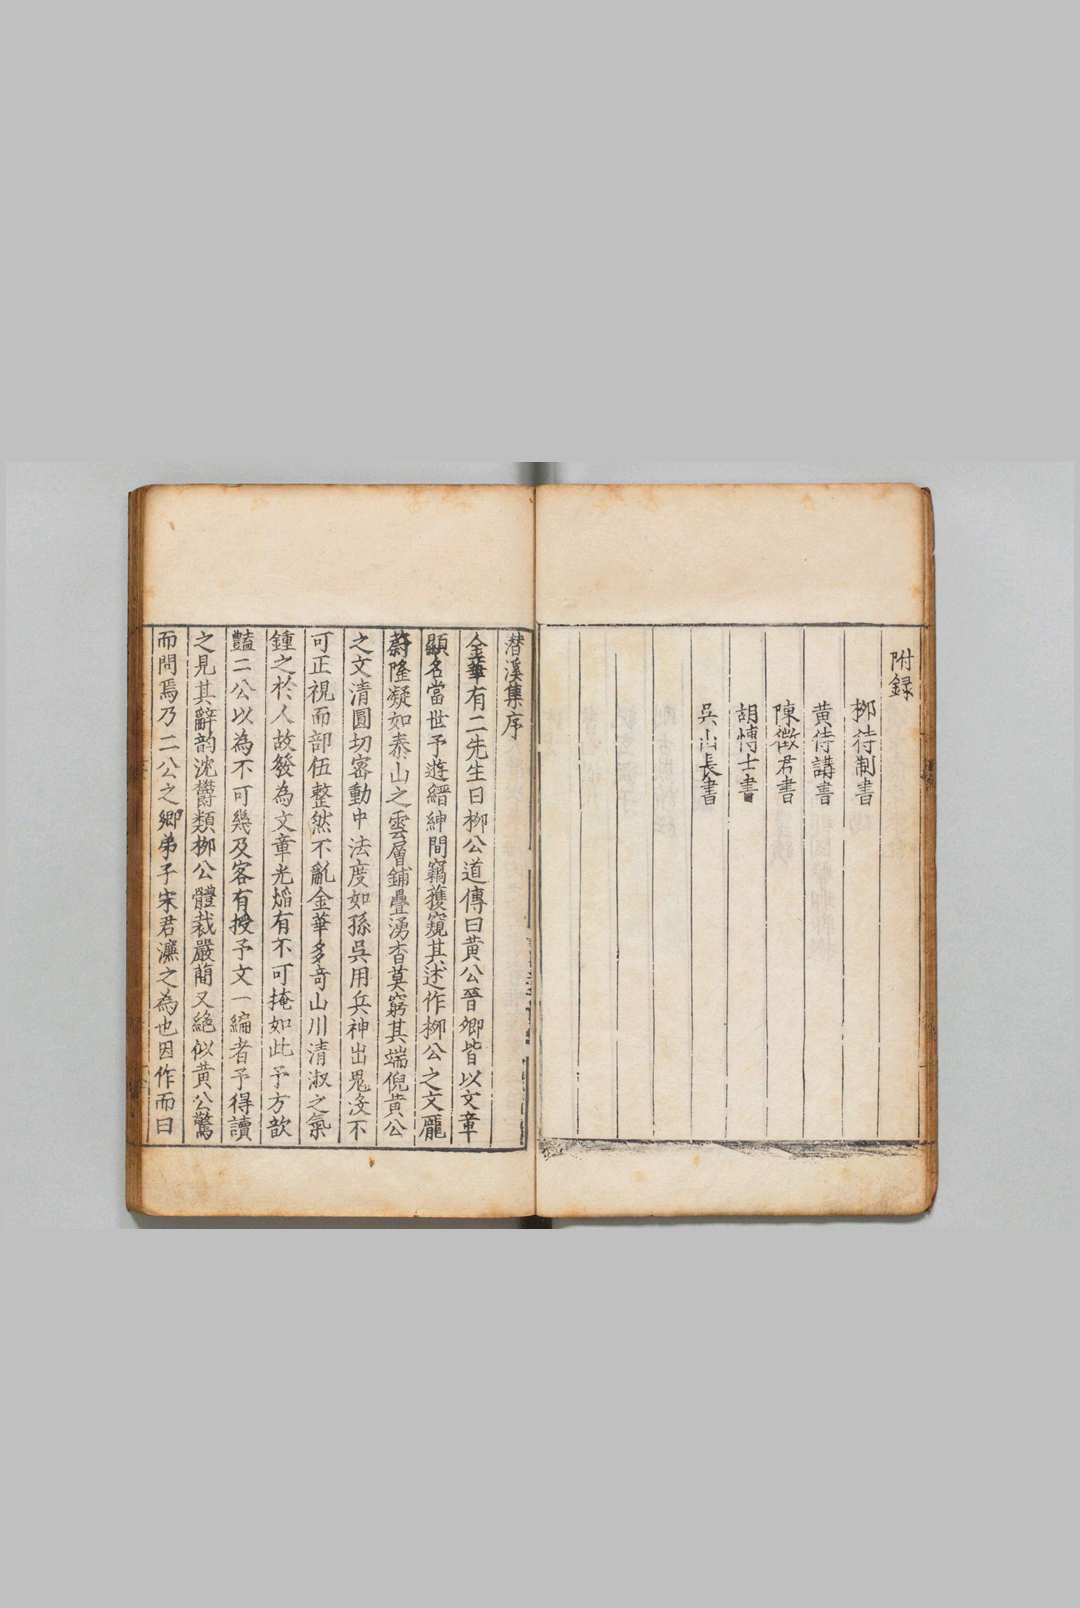 附録
柳待制書
黃待講書
陳徵君書
胡愽士書
吳山長書
潜溪集序
金華有二先生曰柳公道傳曰黃公晉卿皆以文章
顯名當世予遊縉紳間竊獲窺其述作柳公之文龐
蔚隆凝如泰山之雲層鋪疊湧杳莫窮其端倪黃公
之文清圓切宻動中法度如孫吳用兵神出鬼没不
可正視而部伍整然不亂金華多竒山川清淑之氣
鍾之於人故發為文章光熖有不可掩如此予方歆
豔二公以為不可幾及客有授予文一編者予得讀
之見其辭韵沈欝類柳公體裁嚴簡又絕似黃公驚
而問焉乃二公之鄉弟子宋君濂之為也因作而曰